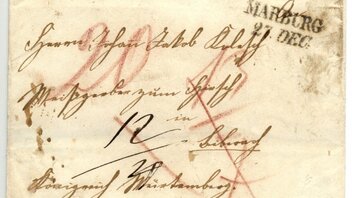 MARBURG
27 DEC
Herrn Johan Jakob
20
Weißgerber zum Hirsch
in
12
Biberach
Königreich Würtemberg.